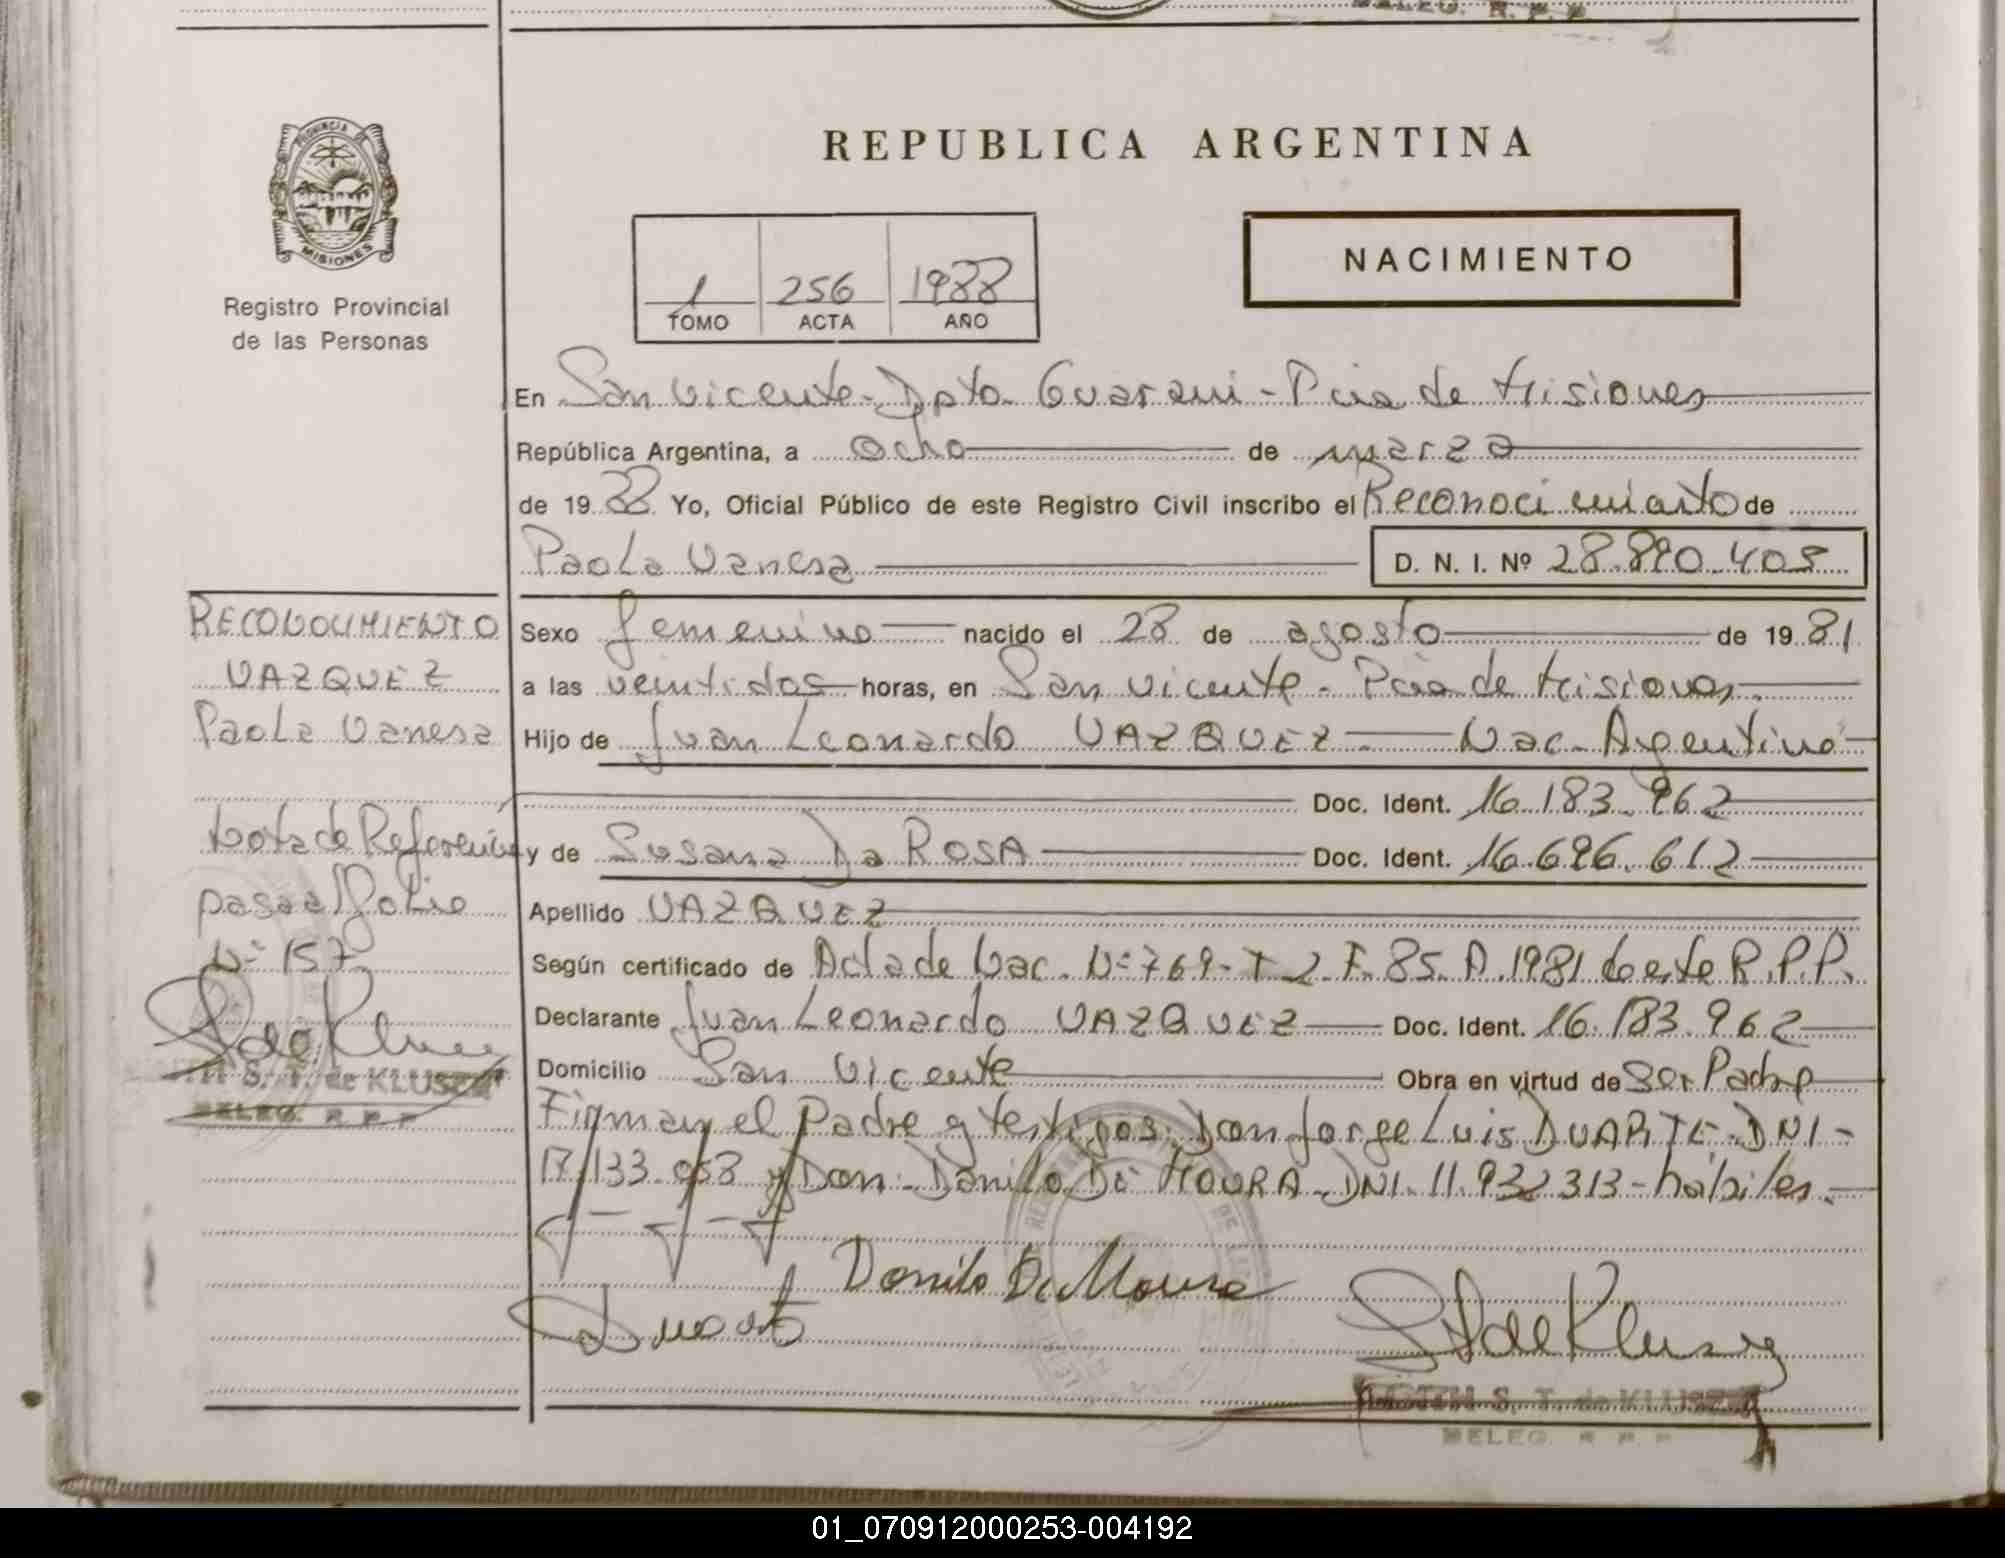 DELEG. R. P. P.
PROVINCIA DE
MISIONES
Registro Provincial
de las Personas
REPUBLICA ARGENTINA
1 256 1988
TOMO ACTA AÑO
NACIMIENTO
En San Vicente - Dpto Guarani - Pcia de Misiones
República Argentina, a ocho de marzo
de 1988 Yo, Oficial Público de este Registro Civil inscribo el Reconocimiento de
Paola Vanesa D. N. I. Nº 28.890.408
RECONOCIMIENTO
VAZQUEZ
Paola Vanesa
Nota de Referencia
pasa al folio
Nº 157
S. T. de KLUSZ
DELEG. R. P. P.
Sexo femenino nacido el 28 de agosto de 1981
a las veintidos horas, en San Vicente - Pcia de Misiones.
Hijo de Juan Leonardo VAZQUEZ - Nac. Argentino
Doc. Ident. 16.183.962
y de Susana Da ROSA Doc. Ident. 16.696.612
Apellido VAZQUEZ
Según certificado de Acta de Nac. Nº 769 - T 2 F. 85 A. 1981 de este R.P.P.
Declarante Juan Leonardo VAZQUEZ Doc. Ident. 16.183.962
Domicilio San Vicente Obra en virtud de Ser Padre
Firman el Padre y testigos: Don Jorge Luis DUARTE - DNI -
17.133.058 y Don Danilo De MOURA - DNI. 11.932313 - hábiles.-
Danilo De Moura
S. T. de KLUSZ
DELEG. R. P. P.
01_070912000253-004192